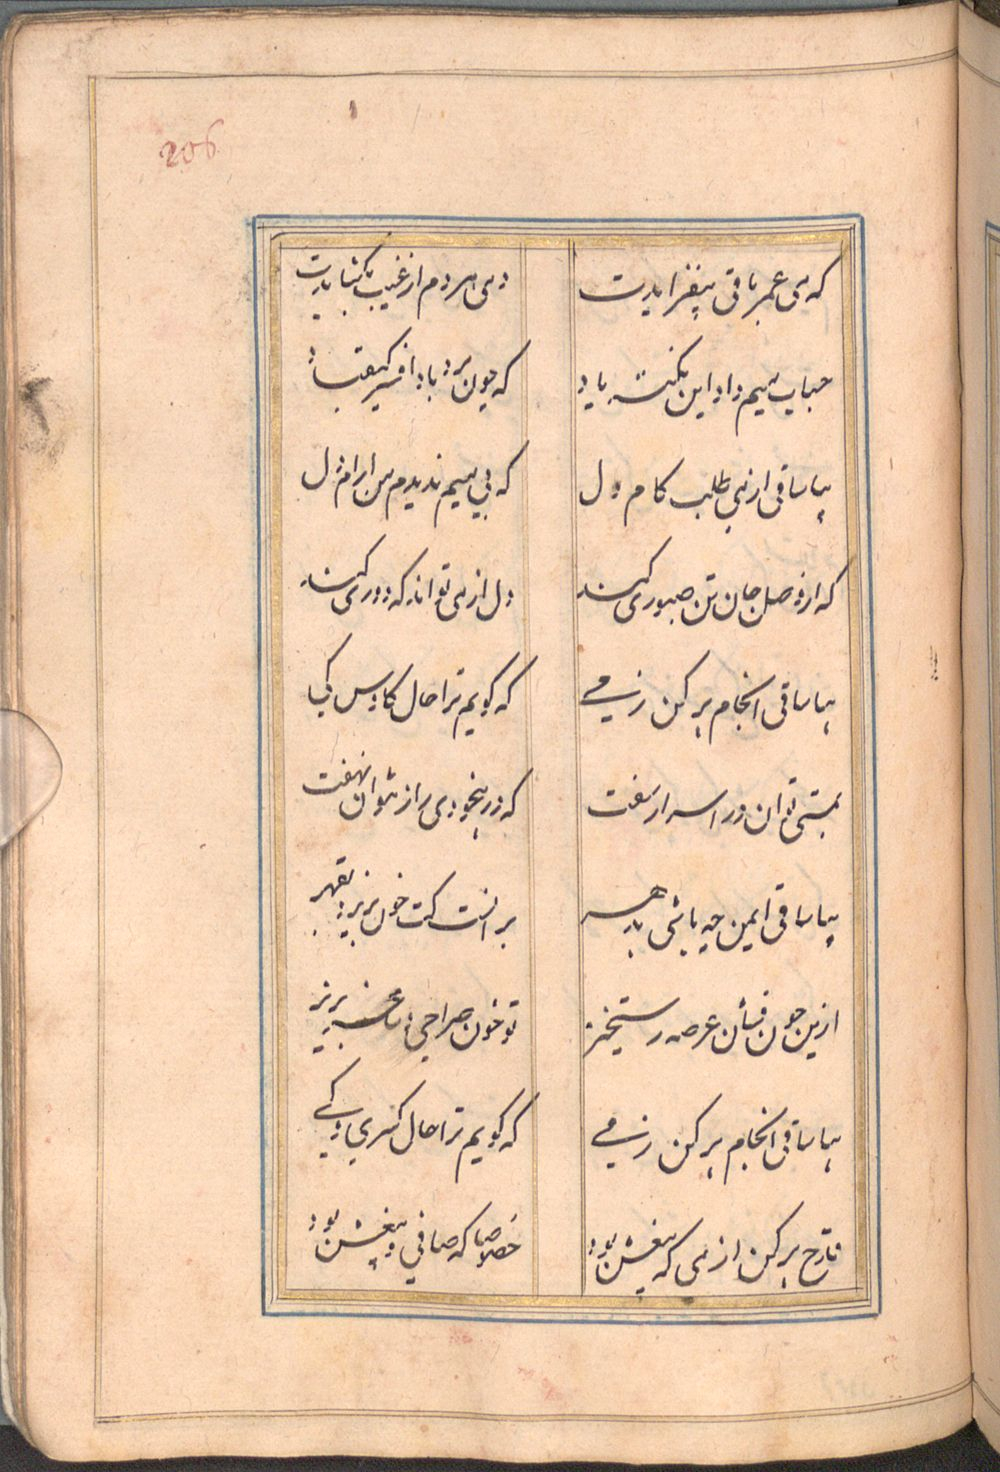 206
که می عمر باقی بیفزایدت دمی هر دم از غیب بگشایدت
حباب میم داد این نکته یاد که چون برد باد افسر کیقباد
بیا ساقی از می طلب کام دل که بی می ندیدم من ارام دل
که از وصل جان تن صبوری کند دل از می تواند که دوری کند
بیا ساقی انجام پر کن ز می که کویم ترا حال کاوس کی
بمستی توان در اسرار سفت که در بیخودی راز نتوان نهفت
بیا ساقی ایمن چه باشی ز دهر بر انست کت خون بریزد بقهر
ازین خون فشان عرصه رستخیز تو خون صراحی بساغر بریز
بیا ساقی انجام پر کن ز می که کویم ترا حال کسری و کی
قدح پر کن از می که بیغش بود خصوصا که صافی و بیغش بود